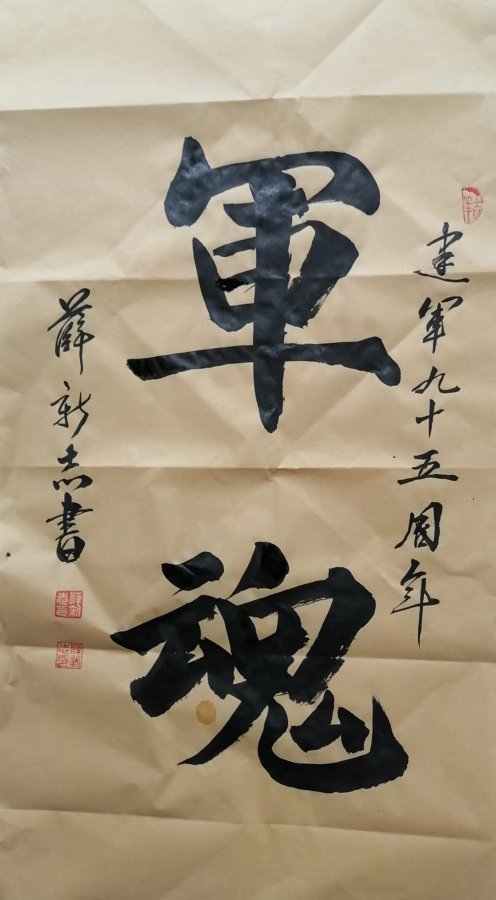 建軍九十五周年
軍魂
薛新志書